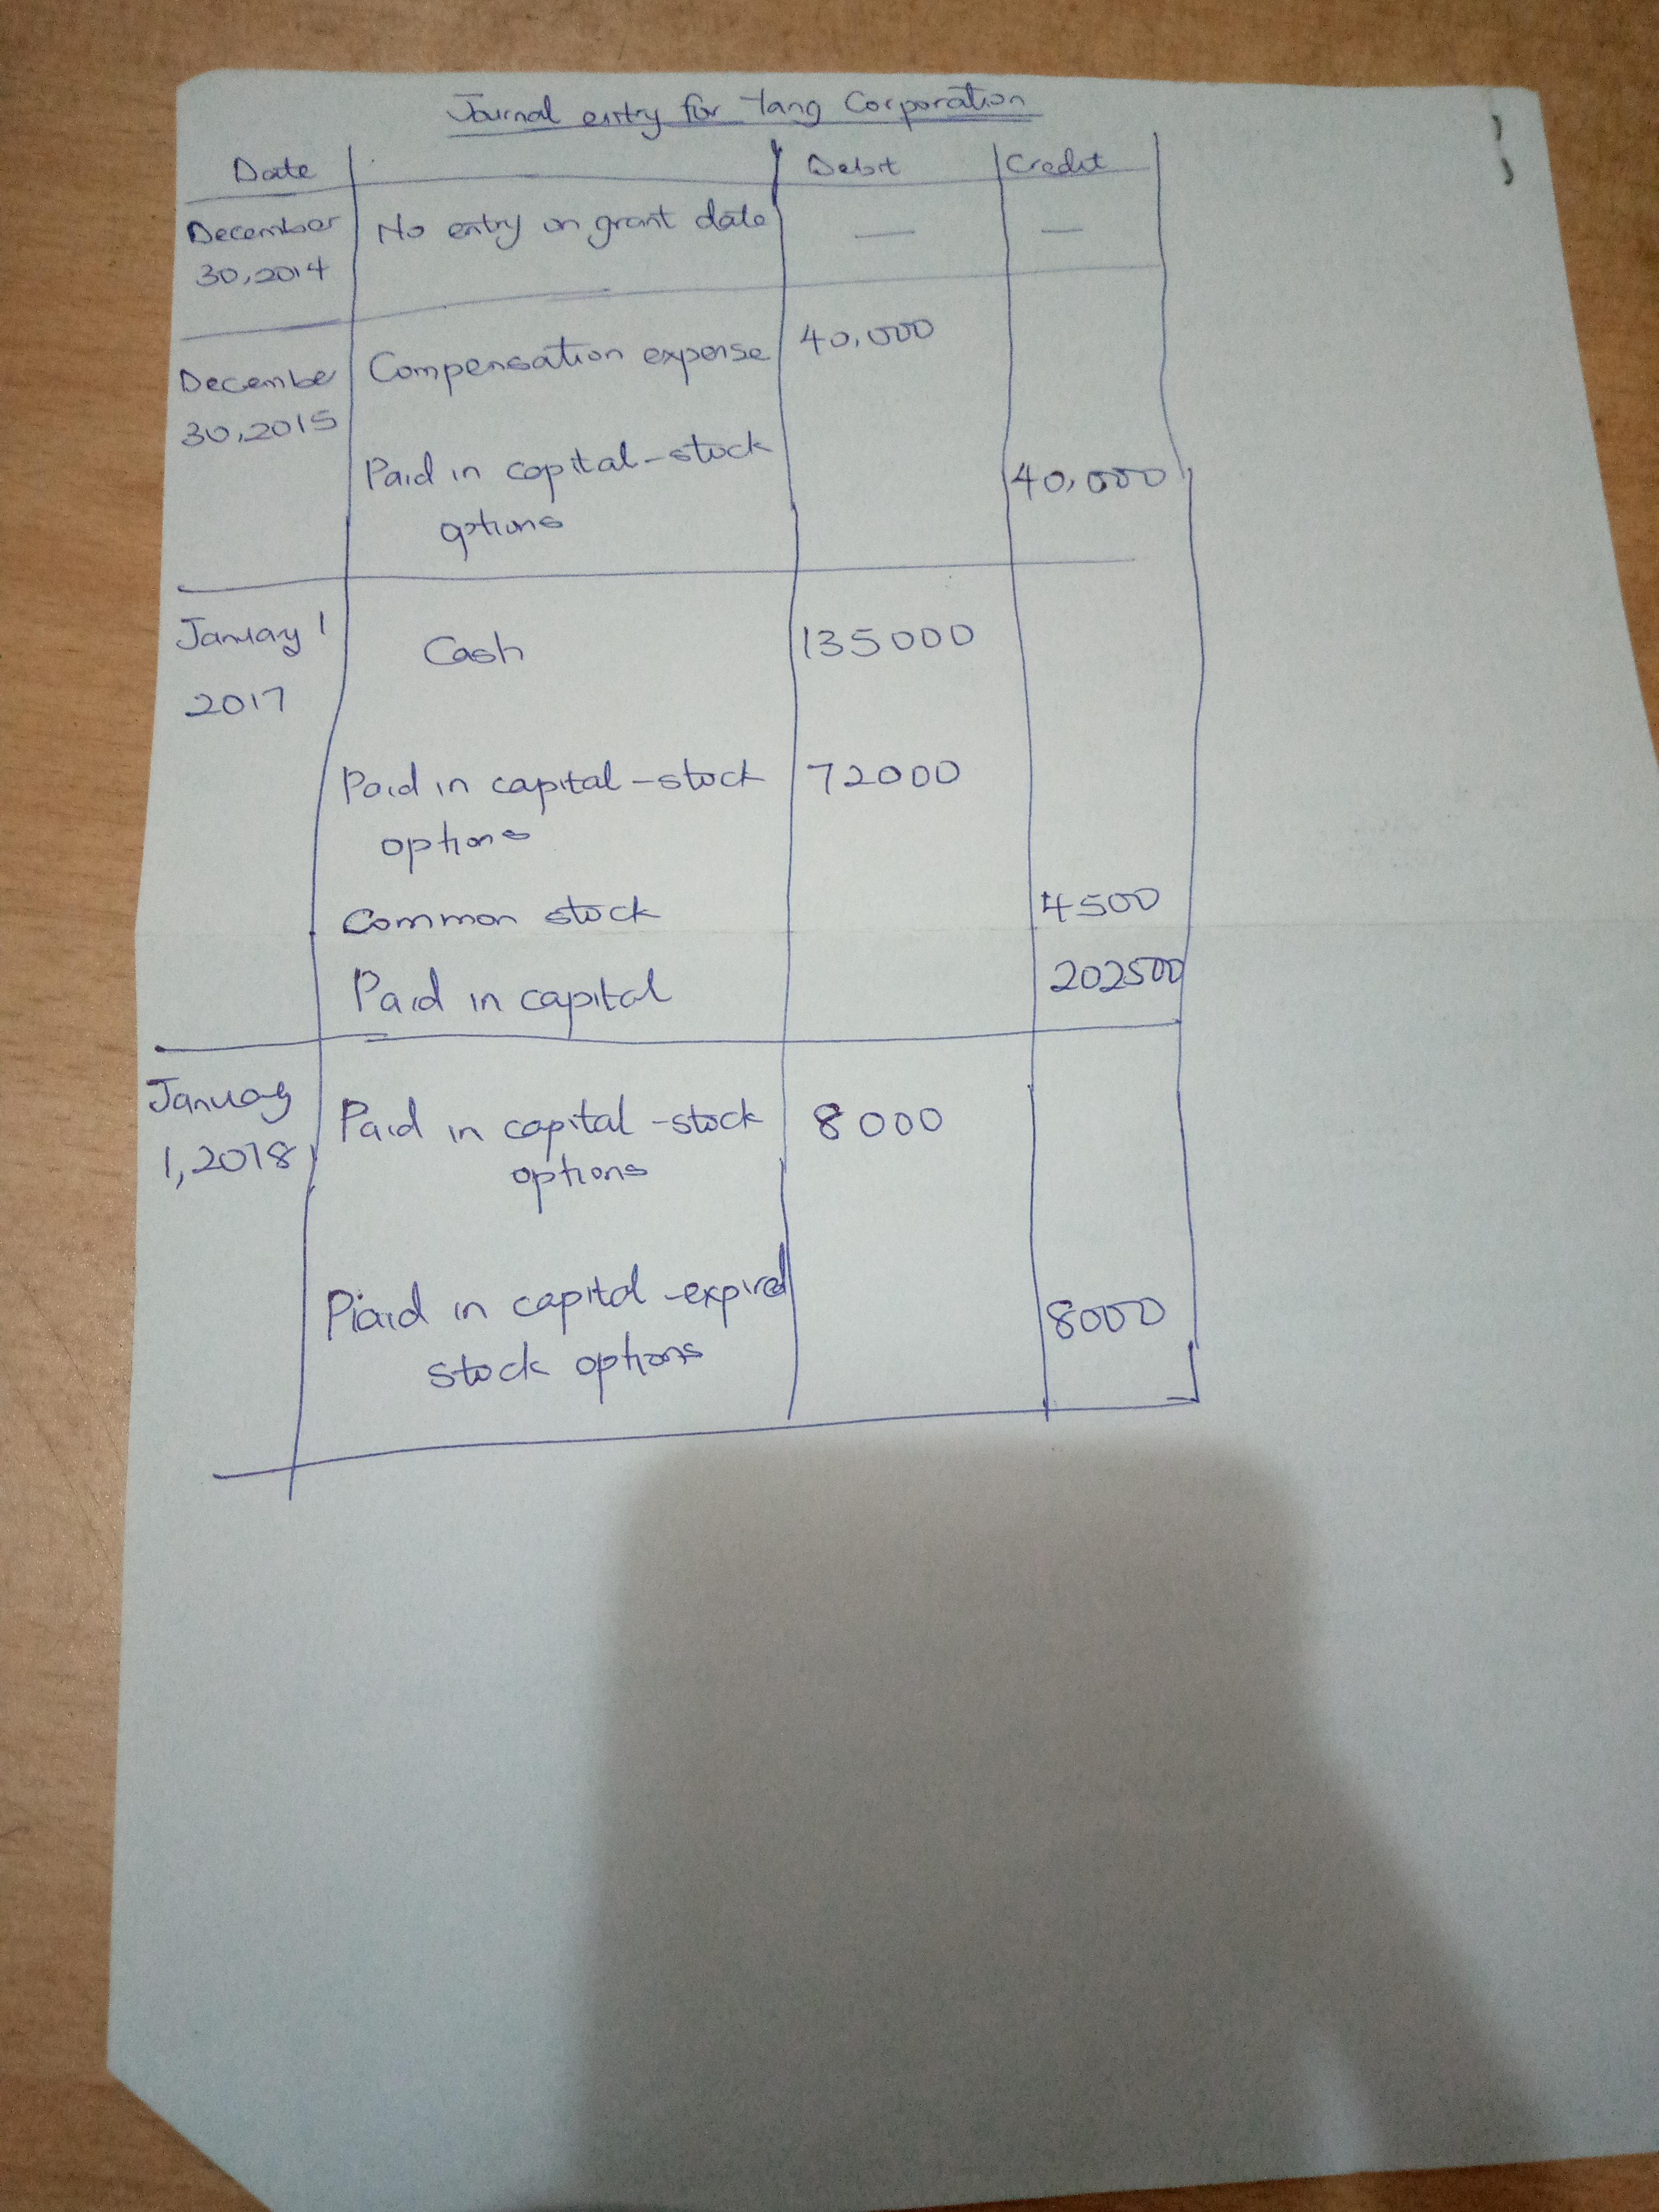 Journal entry for Yang Corporation
Date Debit Credit
December No entry on grant date — —
30,2014
December Compensation expense 40,000
30,2015
Paid in capital-stock 40,000
options
January 1 Cash 135000
2017
Paid in capital-stock 72000
options
Common stock 4500
Paid in capital 202500
January Paid in capital-stock 8000
1,2018 options
Piaid in capital-expired 8000
stock options